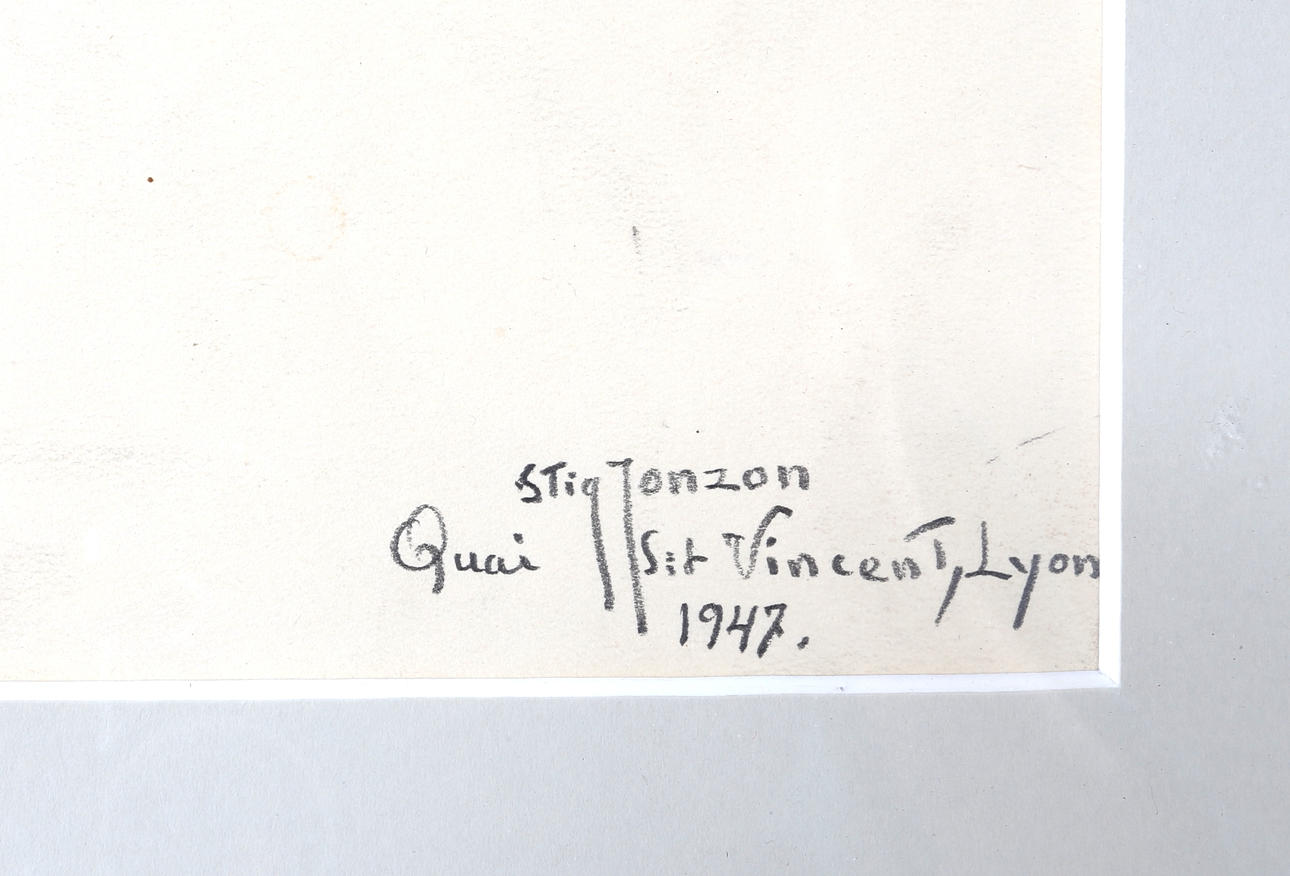 Stig Jonzon
Quai S:t Vincent, Lyon
1947.